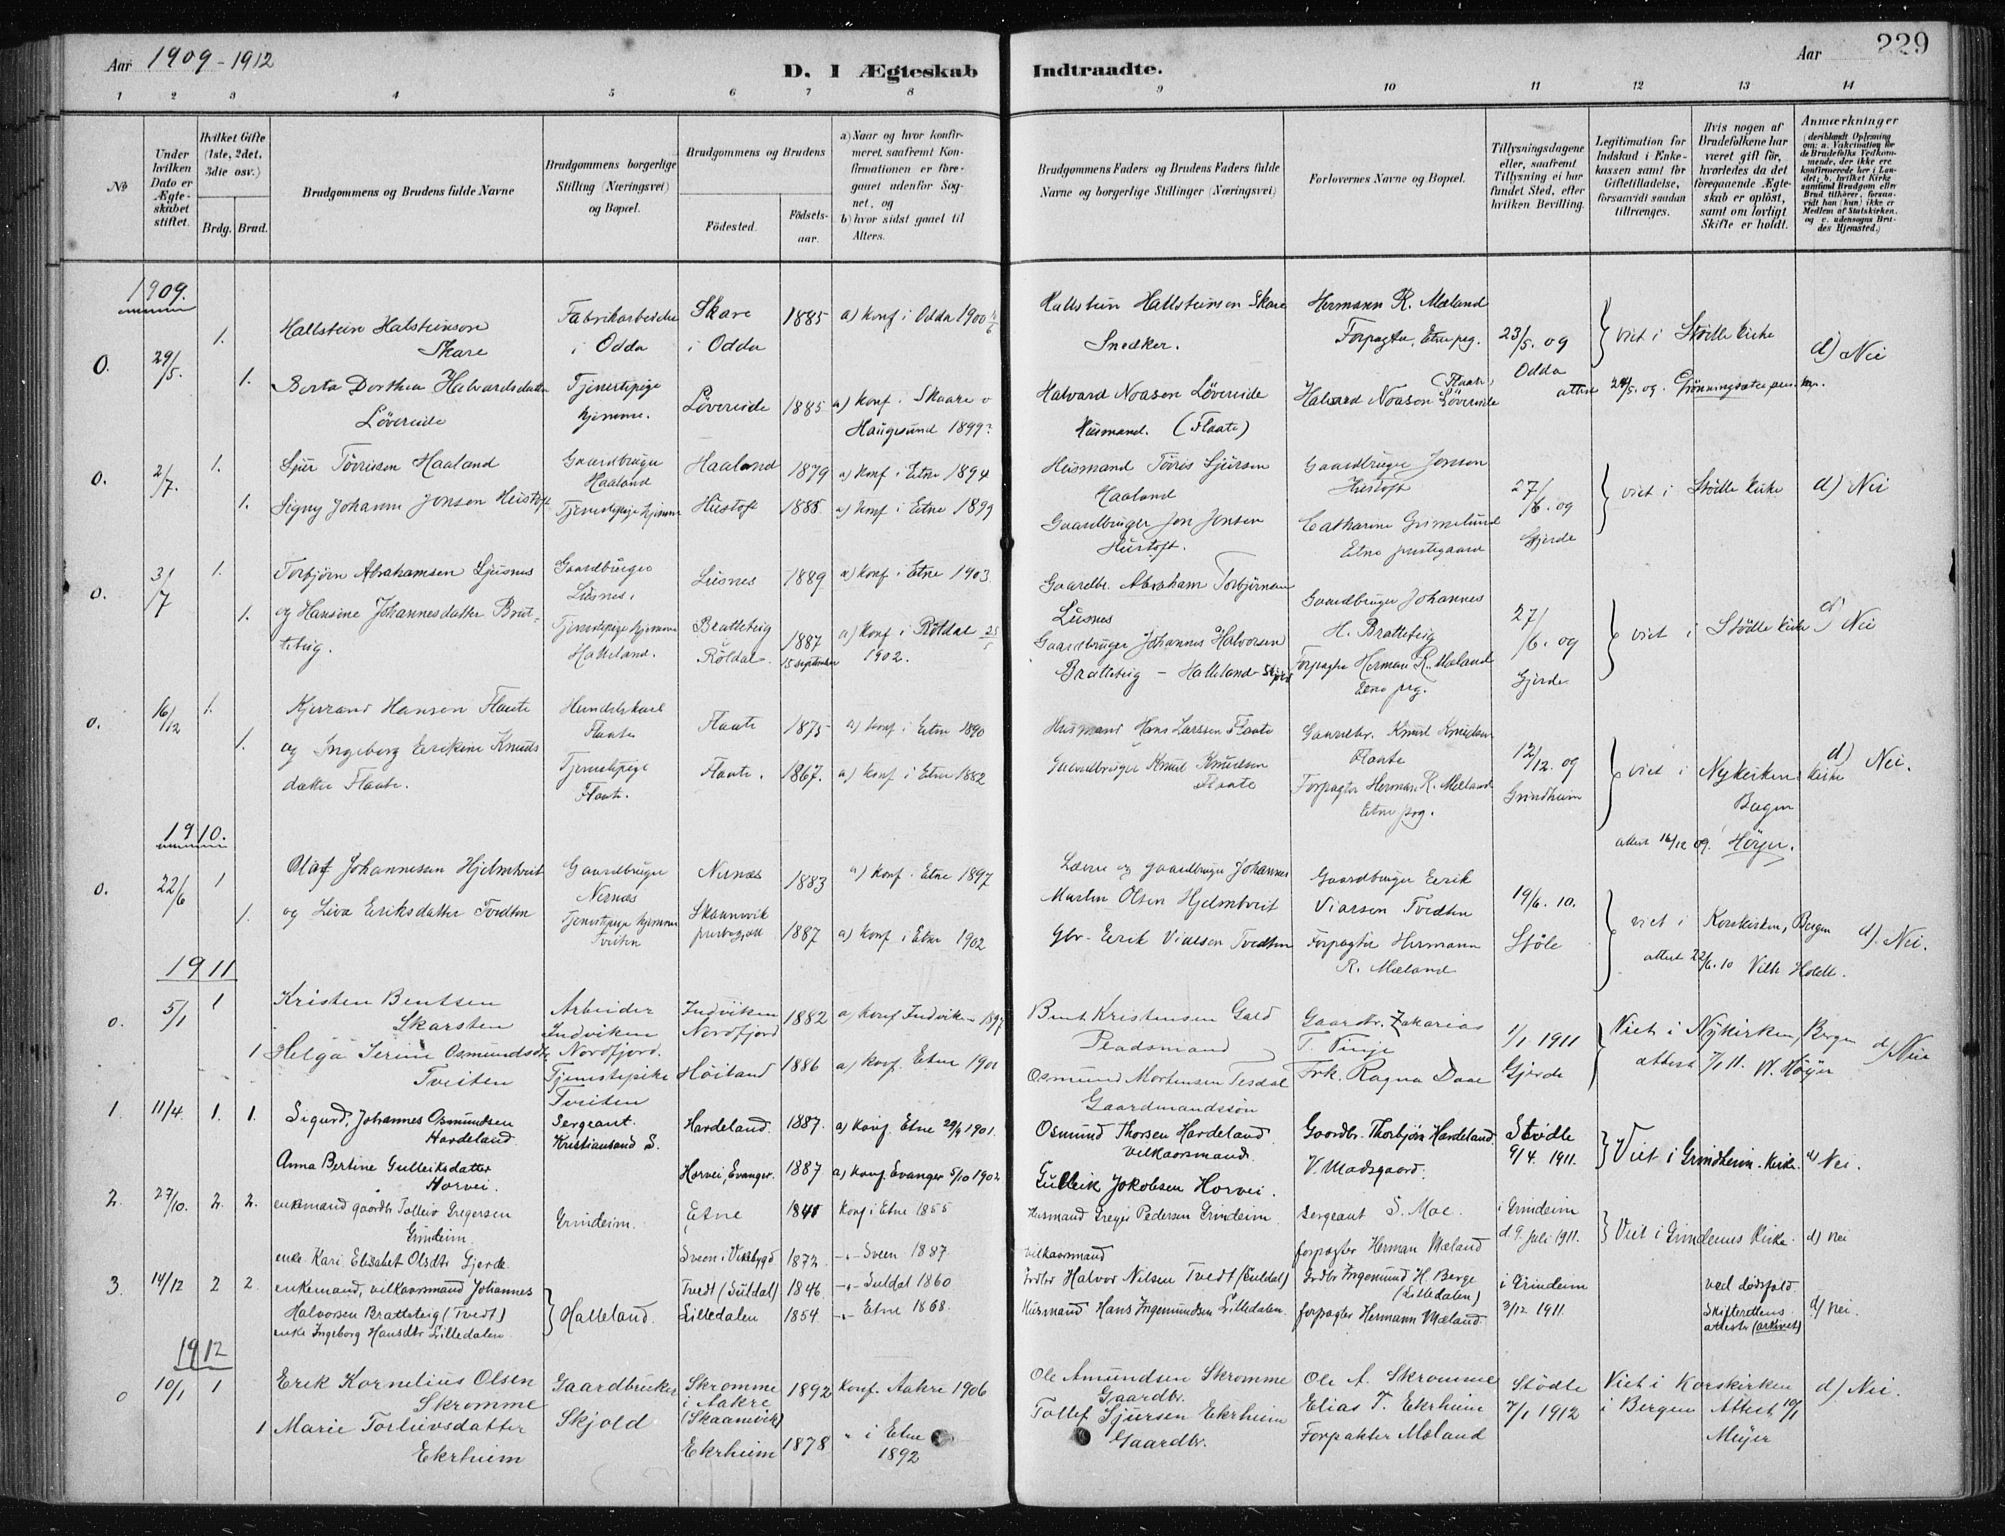 Aar 1909-1912
D. I Ægteskab Indtraadte.
Aar 229
1 2 3 4 5 6 7 8 9 10 11 12 13 14
No
Under hvilken Dato er Ægteskabet stiftet.
Hvilket Gifte (1ste, 2det, 3die osv.)
Brdg. Brud.
Brudgommens og Brudens fulde Navne
Brudgommens borgerlige Stilling (Næringsvei) og Bopæl.
Brudgommens og Brudens
Fødested. Fødselsaar.
a) Naar og hvor konfirmeret, saafremt Konfirmationen er foregaaet udenfor Sognet, og
b) hvor sidst gaaet til Alters.
Brudgommens Faders og Brudens Faders fulde Navne og borgerlige Stillinger (Næringsvei)
Forlovernes Navne og Bopæl.
Tillysningsdagene eller, saafremt Tillysning ei har fundet Sted, efter hvilken Bevilling.
Legitimation for Indskud i Enkekassen samt for Giftetilladelse, forsaavidt saadan tiltrænges.
Hvis nogen af Brudefolkene har været gift før, hvorledes da det foregaaende Ægteskab er opløst, samt om lovligt Skifte er holdt.
Anmærkninger
1909.
0. 29/5. 1. Hallstein Halsteinson Skare Fabrikarbeider i Odda Skare i Odda 1885 a) Konf i Odda 1900 Hallstein Hallsteinson Skare Snedker. Hermann R. Mæland Forpagter, Etne pg. 23/5. og Odda viet i Stødle kirke d) Nei
1. Berta Dorthea Halvardsdatter Løvereide Tjenestepige hjemme. Løvereide 1885 a) Konf. i Skaare v Haugesund 1899? Halvard Noason Løvereide Husmand. (Flaate) Halvard Noason Løvereide (Flaate) attest 29/5. og.
0. 2/7. 1. Sjur Tørrisen Haaland Gaardbruger Haaland Haaland 1879 a) Konf i Etne 1894 Husmand Tørris Sjursen Haaland Gaardbruger Jonson Hustoft 27/6. og Gjerde viet i Stødle kirke d) Nei
1. Signy Johanne Jonsen Hustoft Tjenestepige hjemme Hustoft 1885 a) Konf i Etne 1899 Gaardbruger Jon Jonsen Hustoft. Catharine Grimelund Etne prestegaard
0. 3/7 1. Torbjørn Abrahamsen Lusnes Gaardbruger Lusnes. Lusnes 1889 a) Konf i Etne 1903 Gaardbr. Abraham Torbjørnsen Lusnes Gaardbruger Johannes H. Bratteteig 27/6. og Gjerde viet i Stødle kirke d) Nei
1. og Hansine Johannesdatter Bratteteig. Tjenestepige hjemme Halleland. Bratteteig Røldal 1887 15 september a) Konf i Røldal 1902. Gaardbruger Johannes Halvorsen Bratteteig - Halleland Forpagter Herman R. Mæland Etne pg.
0. 16/12 1. Kjerrand Hansen Flaate Flaate Flaate 1875 a) Konf i Etne 1890 Husmand Hans Larssen Flaate Gaardbr. Knud Knudsen Flaate 12/12. og Grindheim viet i Nykirkens kirke Bergen d) Nei.
1. og Ingeborg Erikine Knudsdatter Flaate. Tjenestepige Flaate. Flaate. 1867. a) Konf i Etne 1882 Gaardbruger Knud Knudsen Flaate Forpagter Herman R. Mæland Etne pg. attest 16/12 09. Høyer.
1910.
0. 22/6 1 Olaf Johannesen Hjelmtveit Gaardbruger Nernæs Nernæs 1883 a) Konf. i Etne 1897 Lærer og gaardbruger Johannes Martin Olsen Hjelmtveit Gaardbruger Eerik Viarsen Tvedten 19/6. 10. Støle viet i Korskirken, Bergen d). Nei.
1. og Liva Eriksdatter Tvedten Tjenestepige hjemme Tveiten Skaanevik prestegjæld 1887 a) Konf. i Etne 1902 Gbr. Erik Vialsen Tvedten Forpagter Hermann R. Mæland attest 22/6. 10 Vilh. Holdt.
1911
0. 5/1 1 Kristen Bentsen Skarsten Arbeider Indviken Nordfjord. Indviken Nordfjord 1882 a) Konf Indviken 1897 Bent Kristensen Gald Pladsmand Gaardbr. Zakarias T. Vinje 1/1 1911 Gjerde Viet i Nykirken, Bergen d) Nei
1 Helga Serine Osmundsdtr. Tveiten Tjenestepike Tveiten Høiland 1886 a) Konf. Etne 1901 Osmund Mortensen Tesdal Gaardmandssøn Frk. Ragna Daae attest 7/1 11. W. Køyer
1. 11/4 1. 1. Sigurd, Johannes Osmundsen Hardeland. Sergeant. Kristiansand S. Hardeland. 1887. a) Konf. Etne 29/9 1901. Osmund Thorsen Hardeland vilkaarsmand. Gaardbr. Thorbjørn Hardeland. Stødle 9/4. 1911. Viet i Grindheim. Kirke. d) Nei.
Anna Bertine Gulleiksdatter Horvei. Horvei, Evanger. 1887 a) Konf Evanger 5/10 1902 Gulleik Jakobsen Horvei. V. Madsgaard.
2. 27/10. 2. 2. enkemand gaardbr Tolleiv Gregersen Grindeim. Grindeim. Etne 1841 Konf i Etne 1855 Husmand Greges Pedersen Grindeim Sergeant S. Moe. i Grindeim d 9. juli 1911. Viet i Grindemes Kirke. d) nei
enke Kari Elisabet Olsdtr Gjerde. Sveen i Vikebygd 1872 -"- Sveen 1887. vilkaarsmand forpagter Herman Mæland
3. 14/12 2 2. enkemand, vilkaarsmand Johannes Halvorsen Bratteteig (Tvedt) Halleland. Tvedt (Suldal) 1846 -"- Suldal 1860 Grdbr Halvor Nilsen Tvedt (Suldal) Grdbr Ingemund H. Berge (Lilledalen) i Grindeim 3/12 1911. ved dødsfald. Skifterettens attester (arkivet) d) nei.
enke Ingeborg Hansdtr Lilledalen. Lilledalen 1854 -"- Etne 1868. Husmand Hans Ingemundsen Lilledalen. forpagter Hermann Mæland.
1912
0 10/1 1 Erik Kornelius Olsen Skromme Gaardbruker Skjold Skromme i Aakre (Skaanevik) 1892 Konf. Aakre 1906 Ole Amundsen Skromme Gaardbr. Ole A. Skromme Stødle 7/1 1912 Viet i Korskirken i Bergen Attest 10/1 Meyer d) Nei.
1 Marie Torleivsdatter Ekrheim Ekrheim 1878 " i Etne 1892 Tollef Sjursen Ekrheim Gaardbr. Elias T. Ekrheim Forpakter Mæland